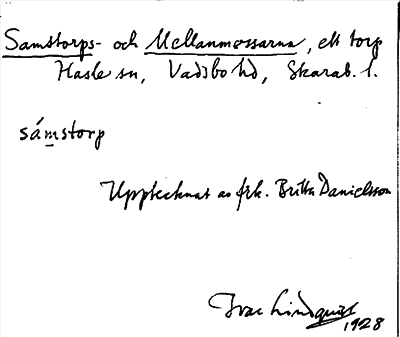 Samstorps- och Mellanmossarna, ett torp
Hasle sn, Vadsbo hd, Skarab. l.
sámstorp
Upptecknat av frk. Britta Danielsson
Ivar Lindquist
1928